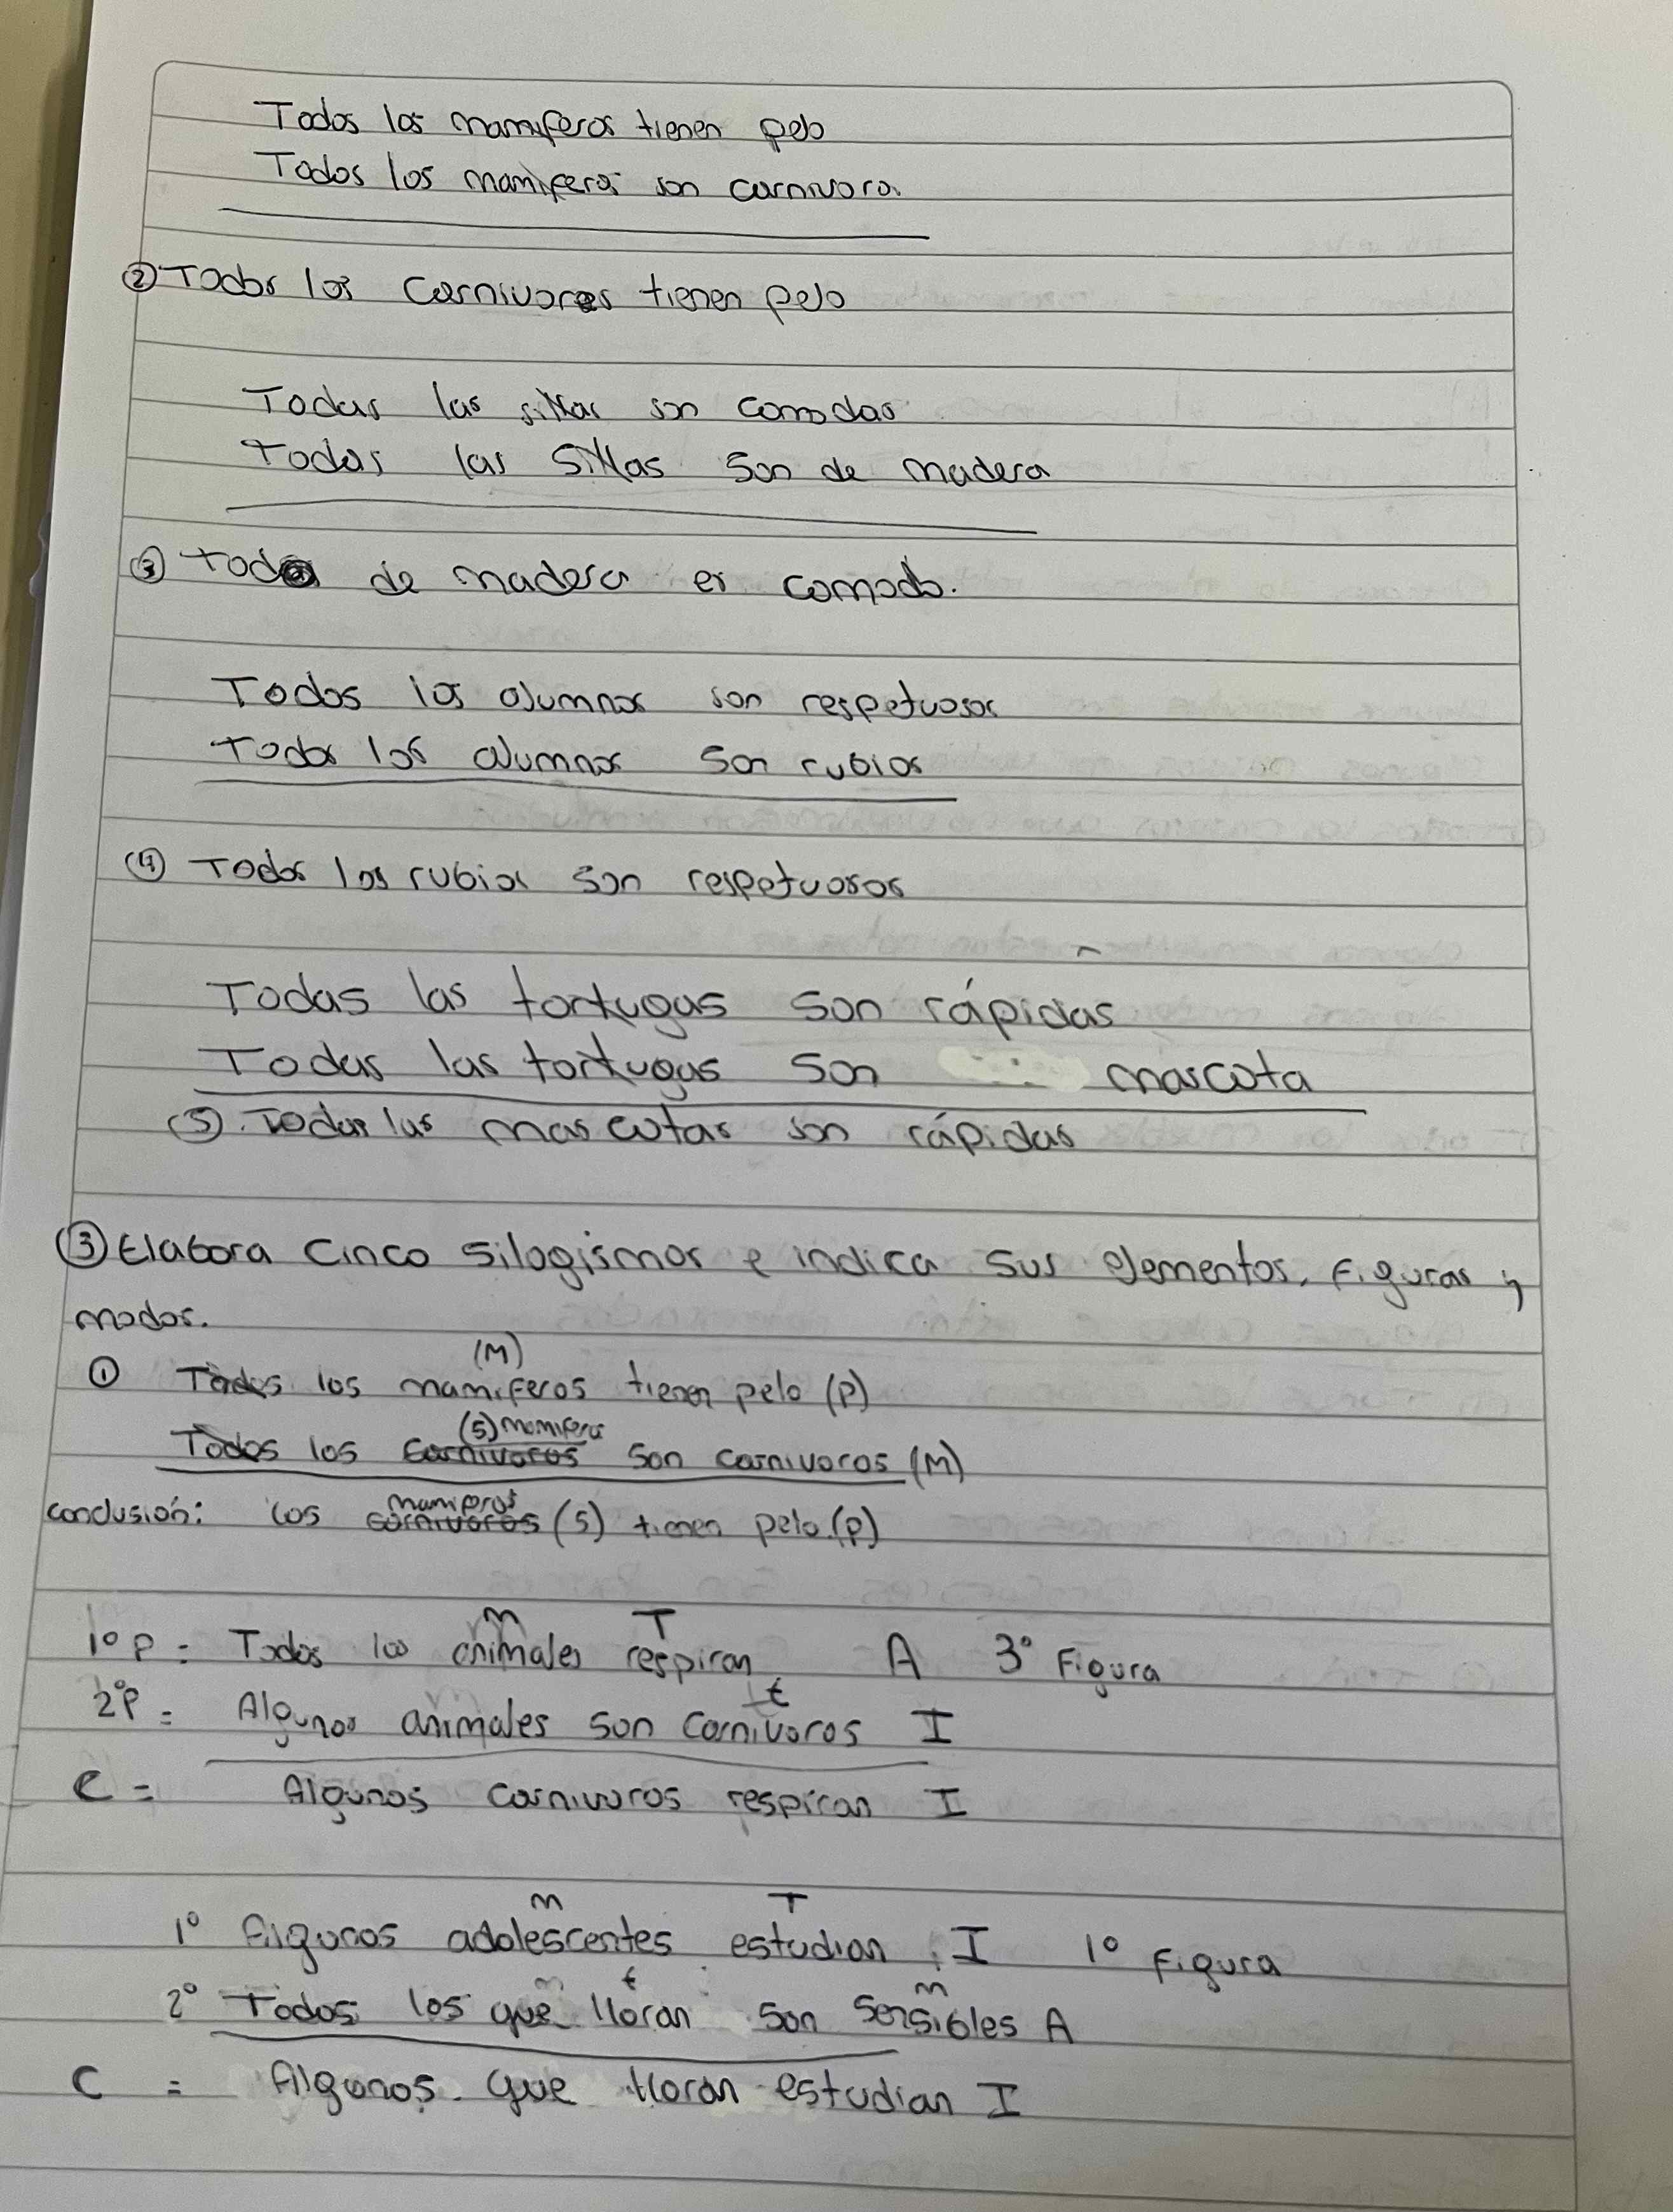 Todos los mamiferos tienen pelo
Todos los mamiferos son carnivoro.
② Todos los carnivoros tienen pelo
Todas las sillas son comodas
Todas las sillas son de madera
③ Todo de madera es comodo.
Todos los alumnos son respetuosos
Todos los alumnos son rubios
④ Todos los rubios son respetuosos
Todas las tortugas son rápidas
Todas las tortugas son mascota
⑤. Todas las mascotas son rápidas
③ Elabora cinco silogismos e indica sus elementos, figuras y
modos.
(M)
① Todos los mamiferos tienen pelo (P)
(S) mamiferos
Todos los carnivoros son carnivoros (M)
mamiferos
conclusión: los carnivoros (S) tienen pelo. (P)
m T
1º P = Todos los animales respiran A 3º Figura
t
2ºP = Algunos animales son carnivoros I
C = Algunos carnivoros respiran I
m T
1º Algunos adolescentes estudian I 1º Figura
m t m
2º Todos los que lloran son sensibles A
C = Algunos que lloran estudian I